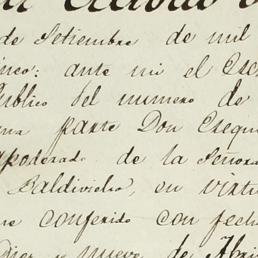 de Setiembre de mil
inco: ante mi el Esc
ublico del numero de
una parte Don Esequi
apoderado de la Señora
Baldivieso, en virtu
me conferido con fech
Diez y nueve de Abri